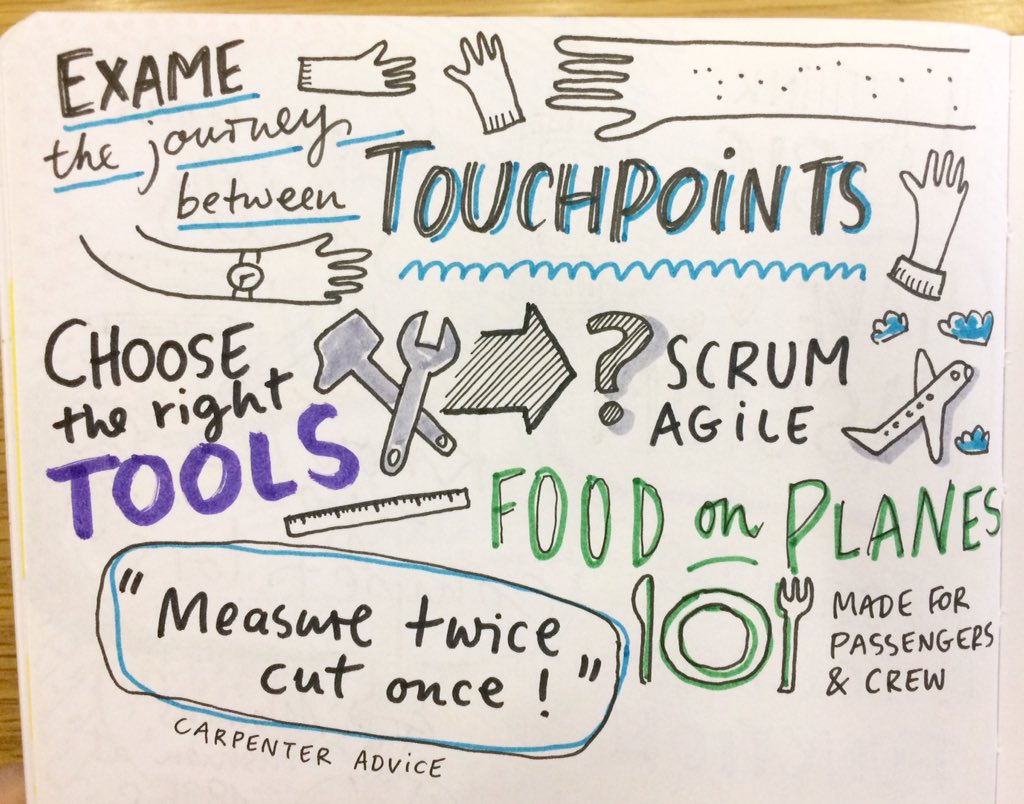 EXAME
the journey
between
TOUCHPOINTS
CHOOSE
the right
TOOLS
?
SCRUM
AGILE
FOOD on PLANES
MADE FOR
PASSENGERS
& CREW
"Measure twice
cut once!"
CARPENTER ADVICE